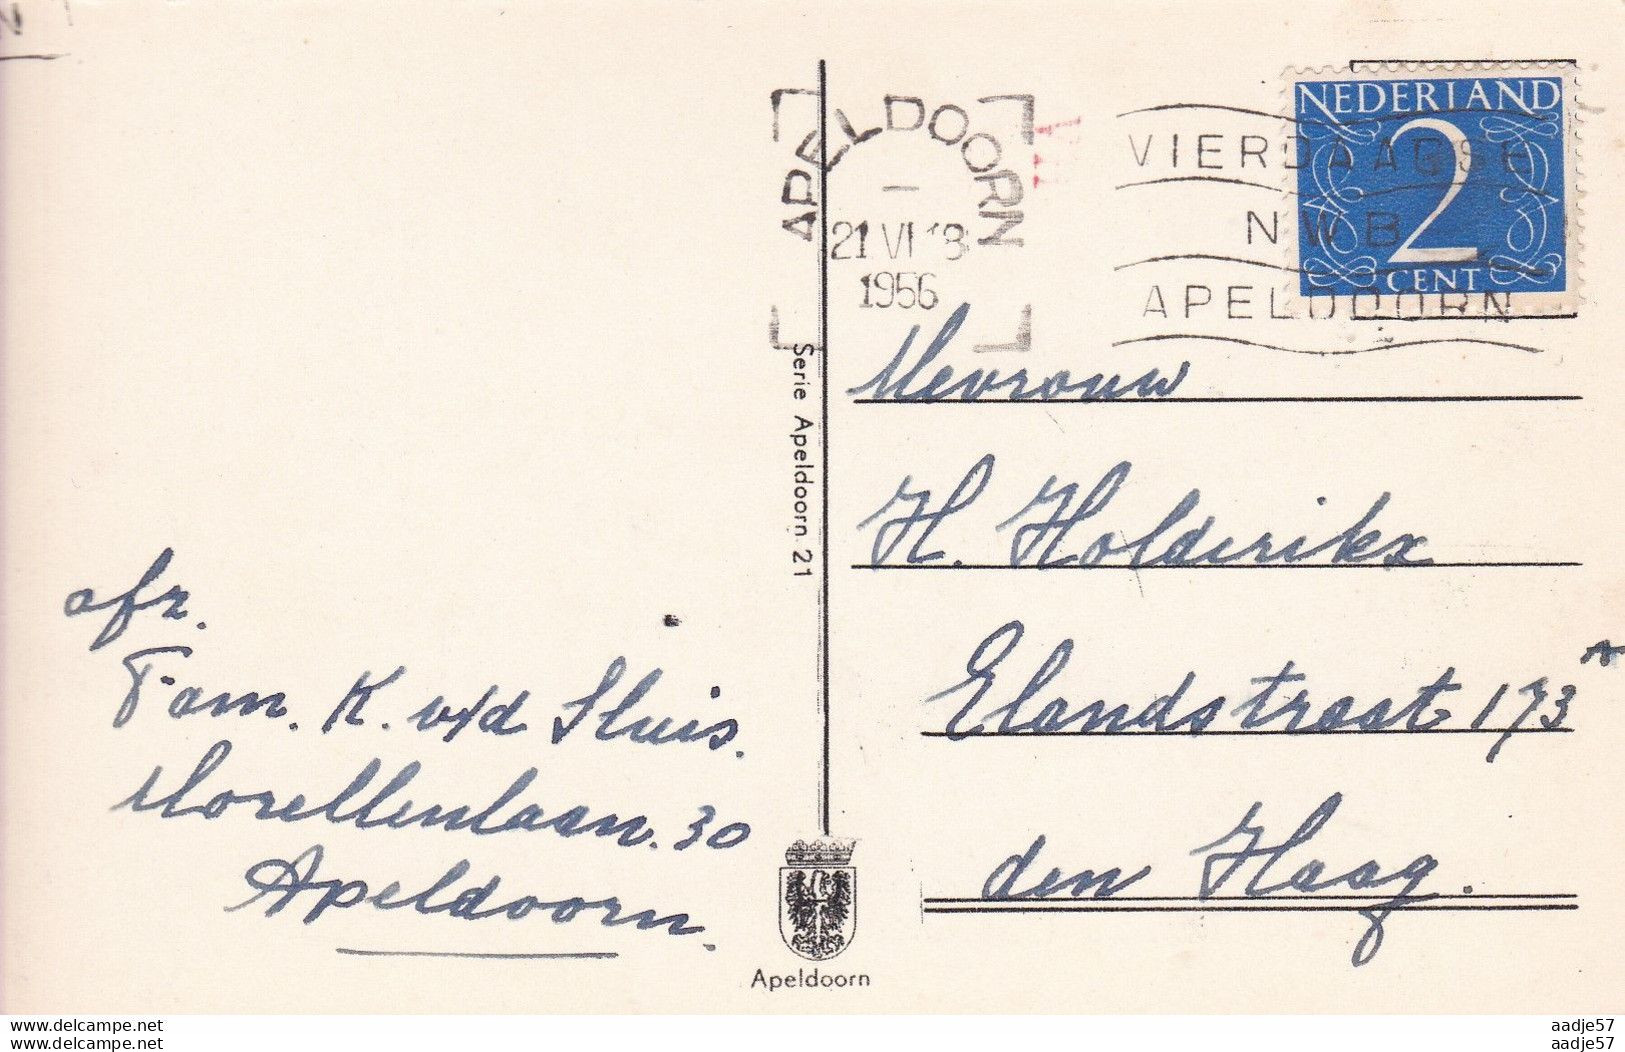 APELDOORN
21 VI 18
1956
VIERDAAGSE
NWB
APELDOORN
NEDERLAND
2
CENT
Serie Apeldoorn 21
Mevrouw
H. Holderikx
Elandstraat 173 A
den Haag.
afz.
Fam. K. v/d Sluis.
Morellenlaan. 30
Apeldoorn.
Apeldoorn
www.delcampe.net
www.delcampe.net
aadje57
aadje57